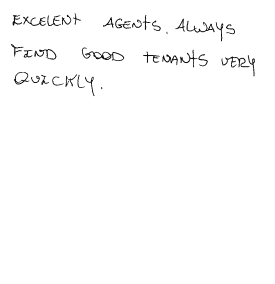 EXCELENT AGENTS. ALWAYS
FIND GOOD TENANTS VERY
QUICKLY.